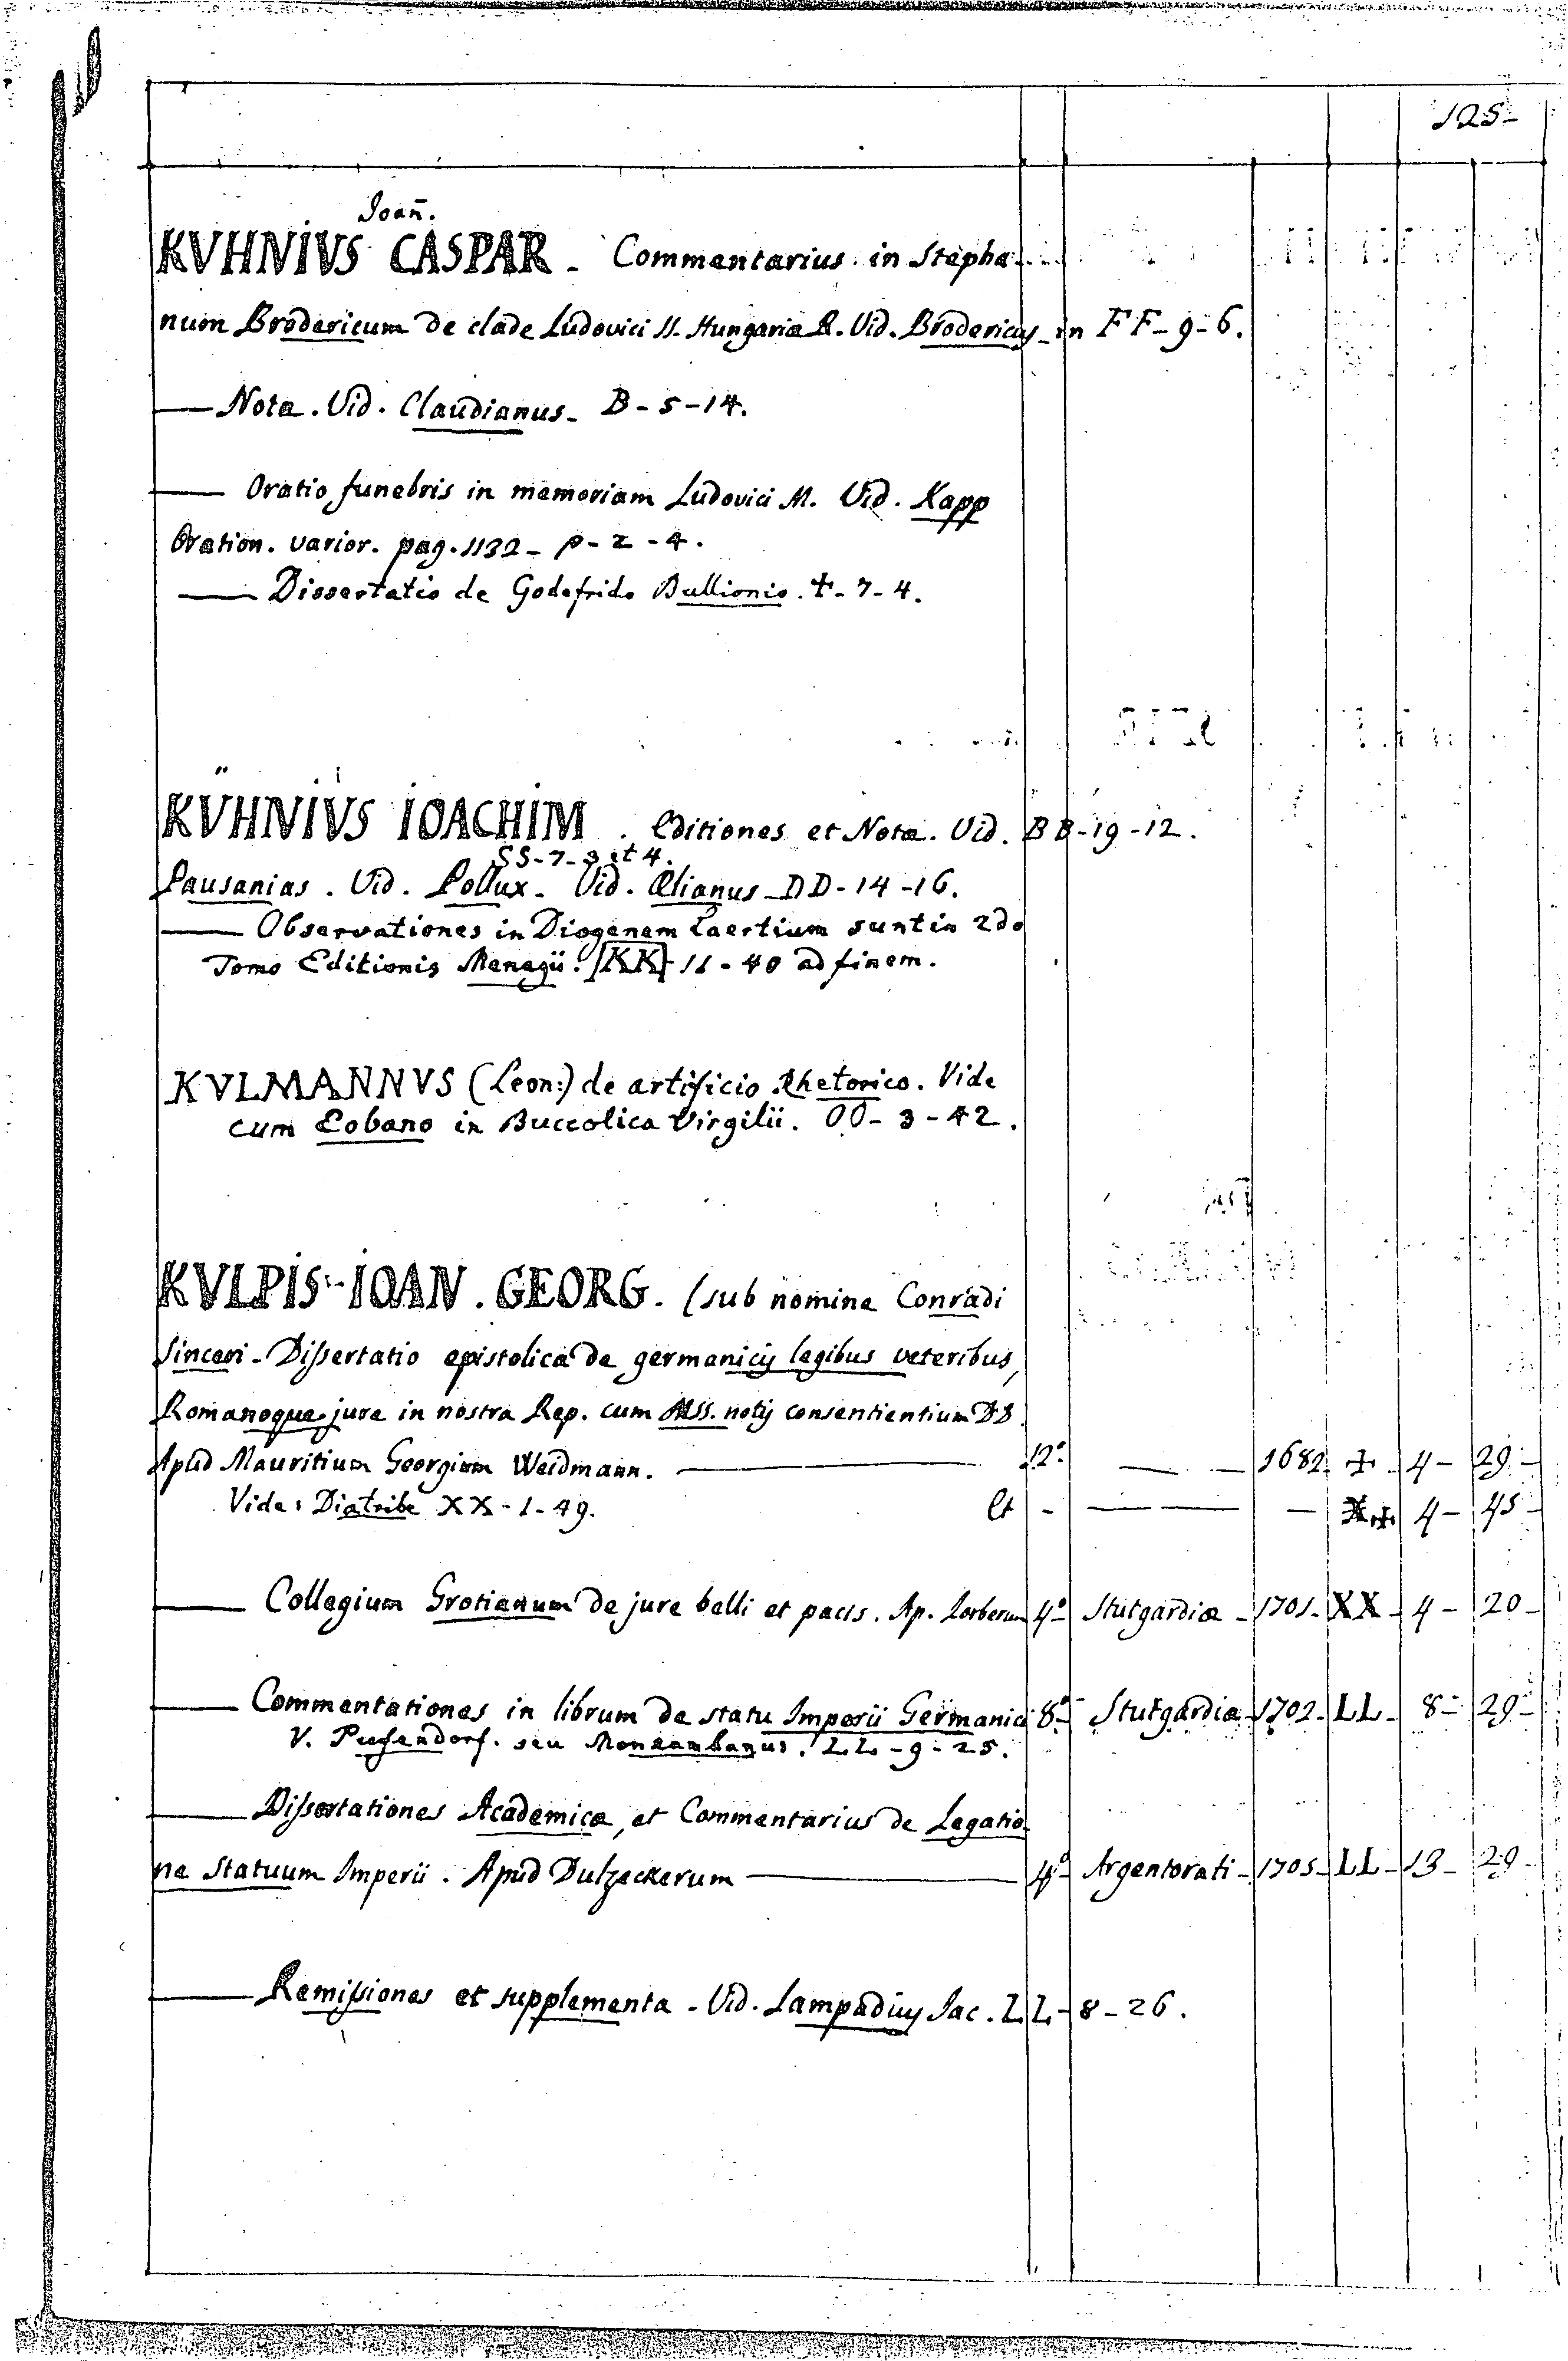 125-
Joañ.
KVHNIVS CASPAR - Commentarius in Stepha
num Brodericum de clade Ludovici II. Hungariæ R. Vid. Brodericus - in FF-9-6.
— Notæ. Vid. Claudianus - B-5-14.
— Oratio funebris in memoriam Ludovici M. Vid. Kapp
Oration. varior. pag. 1132 - P-2-4.
— Dissertatio de Godefrido Bullionio. +-7-4.
KÜHNIVS IOACHIM. Editiones et Notæ. Vid. BB-19-12.
SS-7-3 et 4.
Pausanias. Vid. Pollux - Vid. Ælianus - DD-14-16.
— Observationes in Diogenem Laertium sunt in 2do
Tomo Editionis Menagii. KK-11-40 ad finem.
KVLMANNVS (Leon:) de artificio Rhetorico. Vide
cum Eobano in Buccolica Virgilii. OO-3-42.
KVLPIS - IOAN. GEORG. (sub nomine Conradi
Sinceri - Dissertatio epistolica de germanicis legibus veteribus,
Romanoque jure in nostra Rep. cum MSS. notis consentientium DD
Apud Mauritium Georgium Weidmann. — 12° — — 1682 + - 4 - 29 -
Vide: Diatribe XX-1-49. et - — — — + 4 - 45 -
— Collegium Grotianum de jure belli et pacis. Ap. Lorberum 4° Stutgardiæ - 1701 - XX - 4 - 20 -
— Commentationes in librum de statu Imperii Germanici 8° - Stutgardiæ - 1702 - LL - 8 - 29 -
V. Pufendorf. seu Monzambanus. LL-9-25.
— Dissertationes Academicæ, et Commentarius de Legatio-
ne Statuum Imperii. Apud Dulzeckerum — 4° - Argentorati - 1705 - LL - 13 - 29 -
— Remissiones et supplementa - Vid. Lampadius Jac. LL-8-26.